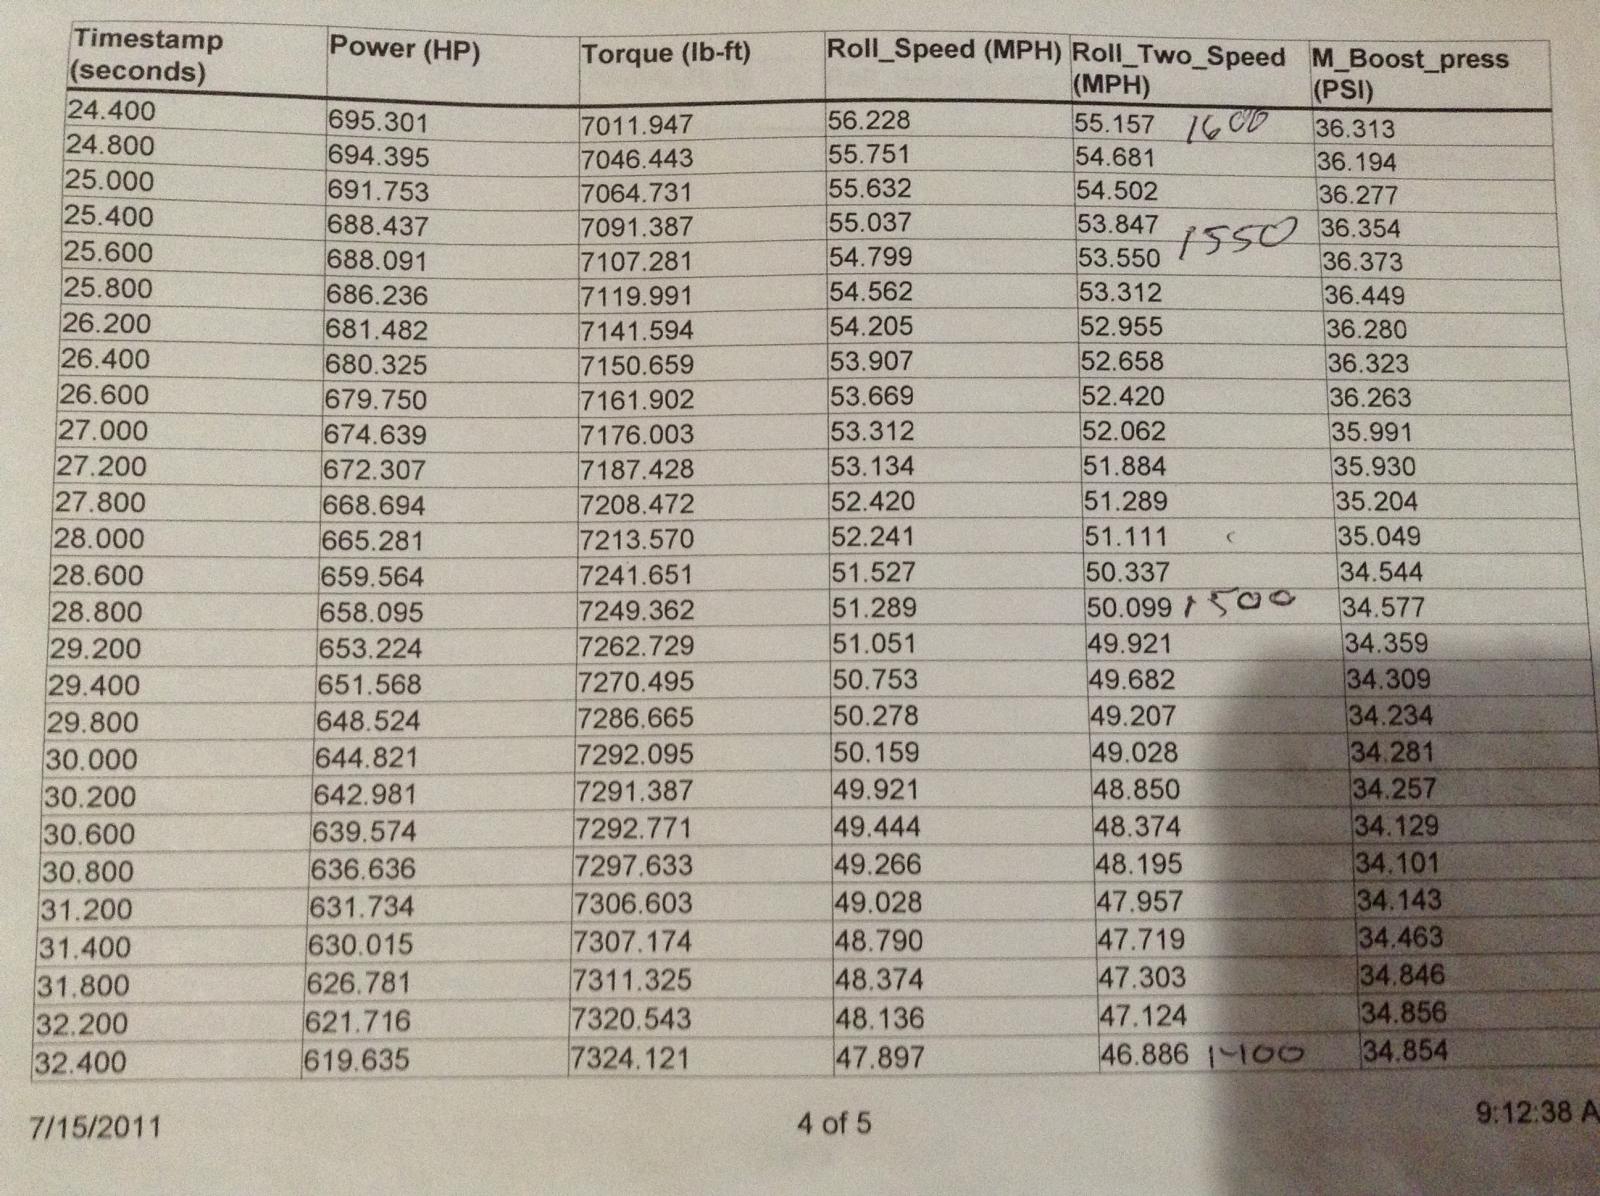 Timestamp (seconds) Power (HP) Torque (lb-ft) Roll_Speed (MPH) Roll_Two_Speed (MPH) M_Boost_press (PSI)
24.400 695.301 7011.947 56.228 55.157 1600 36.313
24.800 694.395 7046.443 55.751 54.681 36.194
25.000 691.753 7064.731 55.632 54.502 36.277
25.400 688.437 7091.387 55.037 53.847 1550 36.354
25.600 688.091 7107.281 54.799 53.550 36.373
25.800 686.236 7119.991 54.562 53.312 36.449
26.200 681.482 7141.594 54.205 52.955 36.280
26.400 680.325 7150.659 53.907 52.658 36.323
26.600 679.750 7161.902 53.669 52.420 36.263
27.000 674.639 7176.003 53.312 52.062 35.991
27.200 672.307 7187.428 53.134 51.884 35.930
27.800 668.694 7208.472 52.420 51.289 35.204
28.000 665.281 7213.570 52.241 51.111 35.049
28.600 659.564 7241.651 51.527 50.337 34.544
28.800 658.095 7249.362 51.289 50.099 1500 34.577
29.200 653.224 7262.729 51.051 49.921 34.359
29.400 651.568 7270.495 50.753 49.682 34.309
29.800 648.524 7286.665 50.278 49.207 34.234
30.000 644.821 7292.095 50.159 49.028 34.281
30.200 642.981 7291.387 49.921 48.850 34.257
30.600 639.574 7292.771 49.444 48.374 34.129
30.800 636.636 7297.633 49.266 48.195 34.101
31.200 631.734 7306.603 49.028 47.957 34.143
31.400 630.015 7307.174 48.790 47.719 34.463
31.800 626.781 7311.325 48.374 47.303 34.846
32.200 621.716 7320.543 48.136 47.124 34.856
32.400 619.635 7324.121 47.897 46.886 1400 34.854
7/15/2011 4 of 5 9:12:38 A